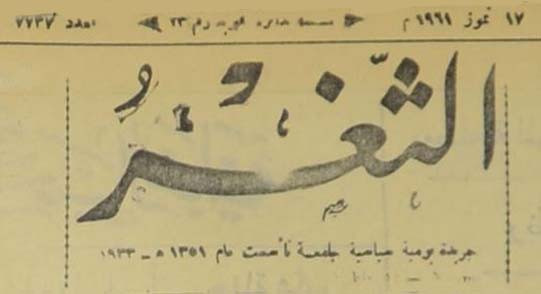 ١٧ تموز ١٩٦١ م صندوق البريد رقم ٢٣ العدد ٧٧٣٧
الثَّغْرُ
جريدة يومية سياسية جامعة تأسست عام ١٣٥١ هـ - ١٩٣٣